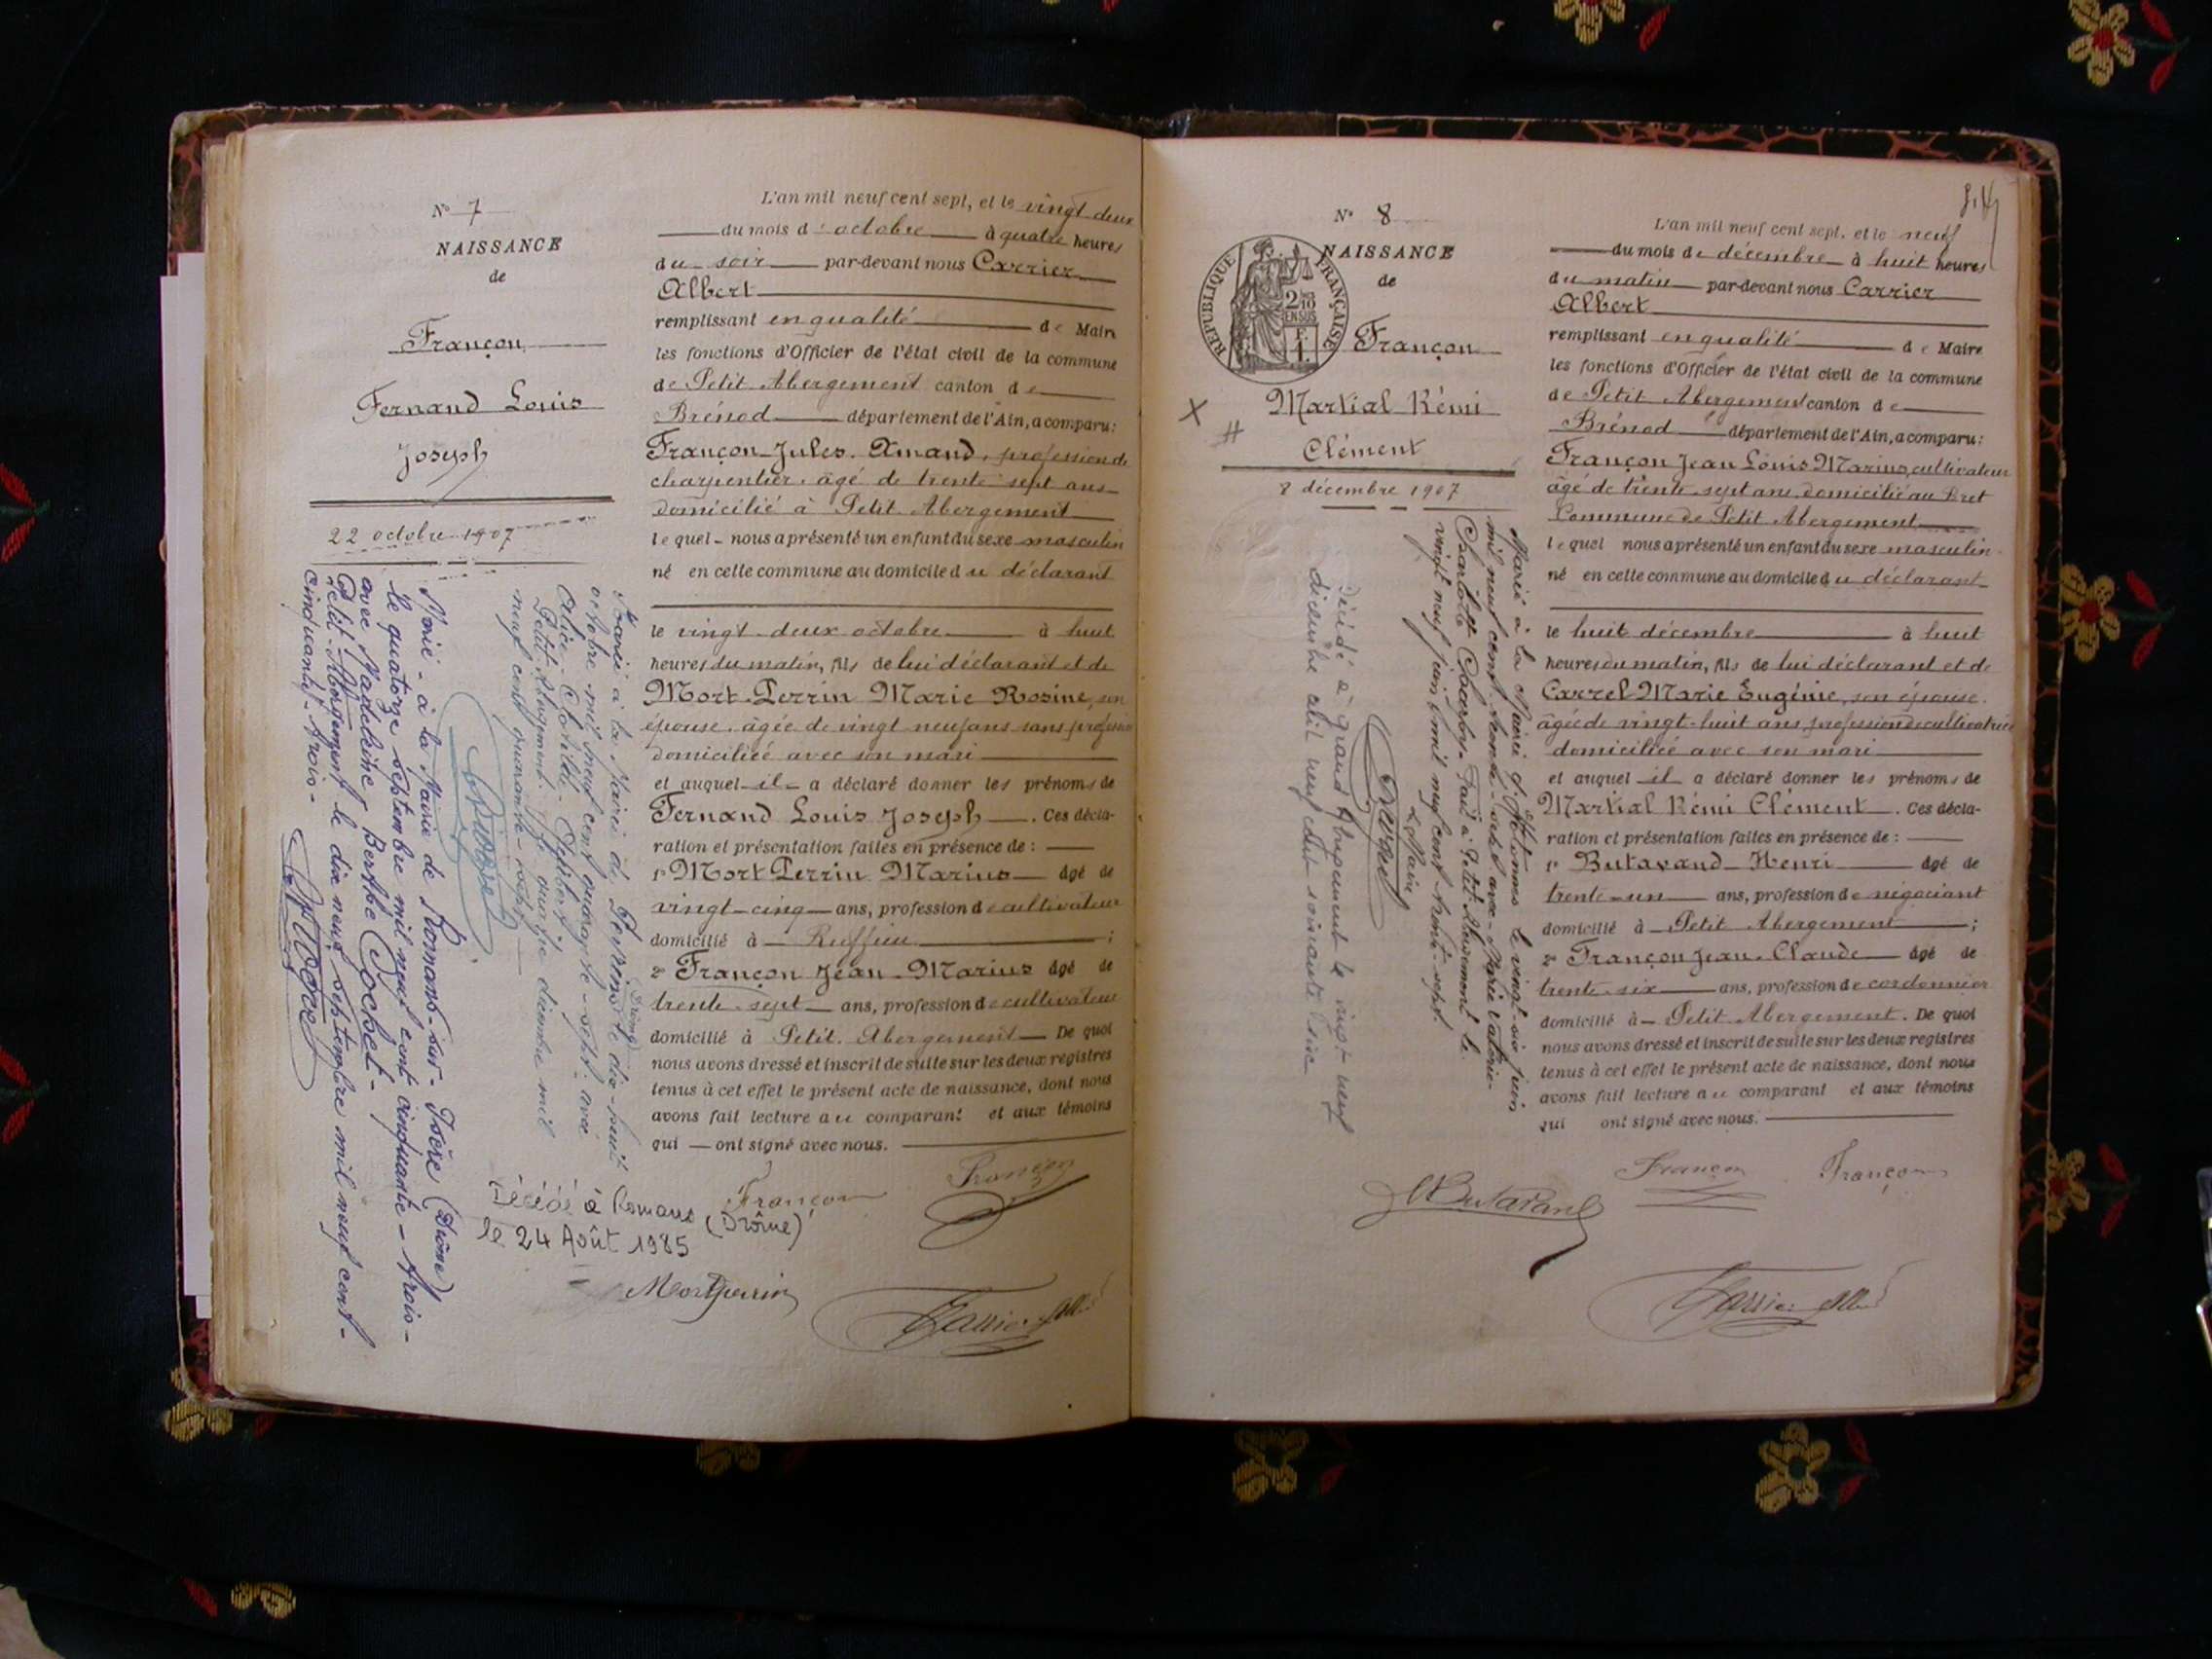 N° 7
NAISSANCE
de
Françon
Fernand Louis
Joseph
22 octobre 1907
L'an mil neuf cent sept, et le vingt deux
du mois d'octobre à quatre heures
du soir par-devant nous Carrier
Albert
remplissant en qualité de Maire
les fonctions d'Officier de l'état civil de la commune
de Petit Abergement canton de
Brénod département de l'Ain, a comparu:
Françon Jules Amand, profession de
charpentier, âgé de trente sept ans
domicilié à Petit Abergement
lequel nous a présenté un enfant du sexe masculin
né en cette commune au domicile du déclarant
le vingt-deux octobre à huit
heures du matin, fils de lui déclarant et de
Mort-Perrin Marie Rosine, son
épouse, âgée de vingt neuf ans sans profession
domiciliée avec son mari
et auquel il a déclaré donner les prénoms de
Fernand Louis Joseph. Ces décla-
ration et présentation faites en présence de:
1° Mort Perrin Marius âgé de
vingt-cinq ans, profession de cultivateur
domicilié à Ruffieu;
2° Françon Jean-Marius âgé de
trente-sept ans, profession de cultivateur
domicilié à Petit Abergement De quoi
nous avons dressé et inscrit de suite sur les deux registres
tenus à cet effet le présent acte de naissance, dont nous
avons fait lecture au comparant et aux témoins
qui ont signé avec nous.
Marié à la Mairie de (Drôme) le dix-huit
octobre mil neuf cent quarante-sept avec
Alice Clotilde
Petit Abergement le quinze décembre mil
neuf cent quarante-sept
Marié - à la Mairie de Romans-sur-Isère (Drôme)
le quatorze septembre mil neuf cent cinquante-trois-
avec Madeleine Berthe Cochet-
Petit-Abergement le dix neuf septembre mil neuf cent-
cinquante-trois-
Décédé à Romans (Drôme)
le 24 Août 1985
Françon
Françon
Mortperrin
Carrier Albert
N° 8
NAISSANCE
de
RÉPUBLIQUE FRANÇAISE
2/10 EN SUS
F. 1.
Françon
Martial Rémi
Clément
8 décembre 1907
L'an mil neuf cent sept, et le neuf
du mois de décembre à huit heures
du matin par-devant nous Carrier
Albert
remplissant en qualité de Maire
les fonctions d'Officier de l'état civil de la commune
de Petit Abergement canton de
Brénod département de l'Ain, a comparu:
Françon Jean Louis Marius, cultivateur
âgé de trente-sept ans, domicilié au
Commune de Petit Abergement
lequel nous a présenté un enfant du sexe masculin
né en cette commune au domicile du déclarant
le huit décembre à huit
heures du matin, fils de lui déclarant et de
Carrel Marie Eugénie, son épouse.
âgée de vingt-huit ans, profession de cultivatrice
domiciliée avec son mari
et auquel il a déclaré donner les prénoms de
Martial Rémi Clément. Ces décla-
ration et présentation faites en présence de:
1° Butavand Henri âgé de
trente-un ans, profession de négociant
domicilié à Petit Abergement;
2° Françon Jean-Claude âgé de
trente-six ans, profession de cordonnier
domicilié à Petit Abergement. De quoi
nous avons dressé et inscrit de suite sur les deux registres
tenus à cet effet le présent acte de naissance, dont nous
avons fait lecture au comparant et aux témoins
qui ont signé avec nous.
Marié à la Mairie d' le vingt-six juin
mil neuf cent trente-sept avec Marie Valérie-
Charlotte Petit Abergement le
vingt neuf juin mil neuf cent trente-sept.
Le Maire
Décédé à Grand Abergement le vingt neuf
décembre mil neuf cent soixante six
H Butavand
Françon
Françon
Carrier Albert